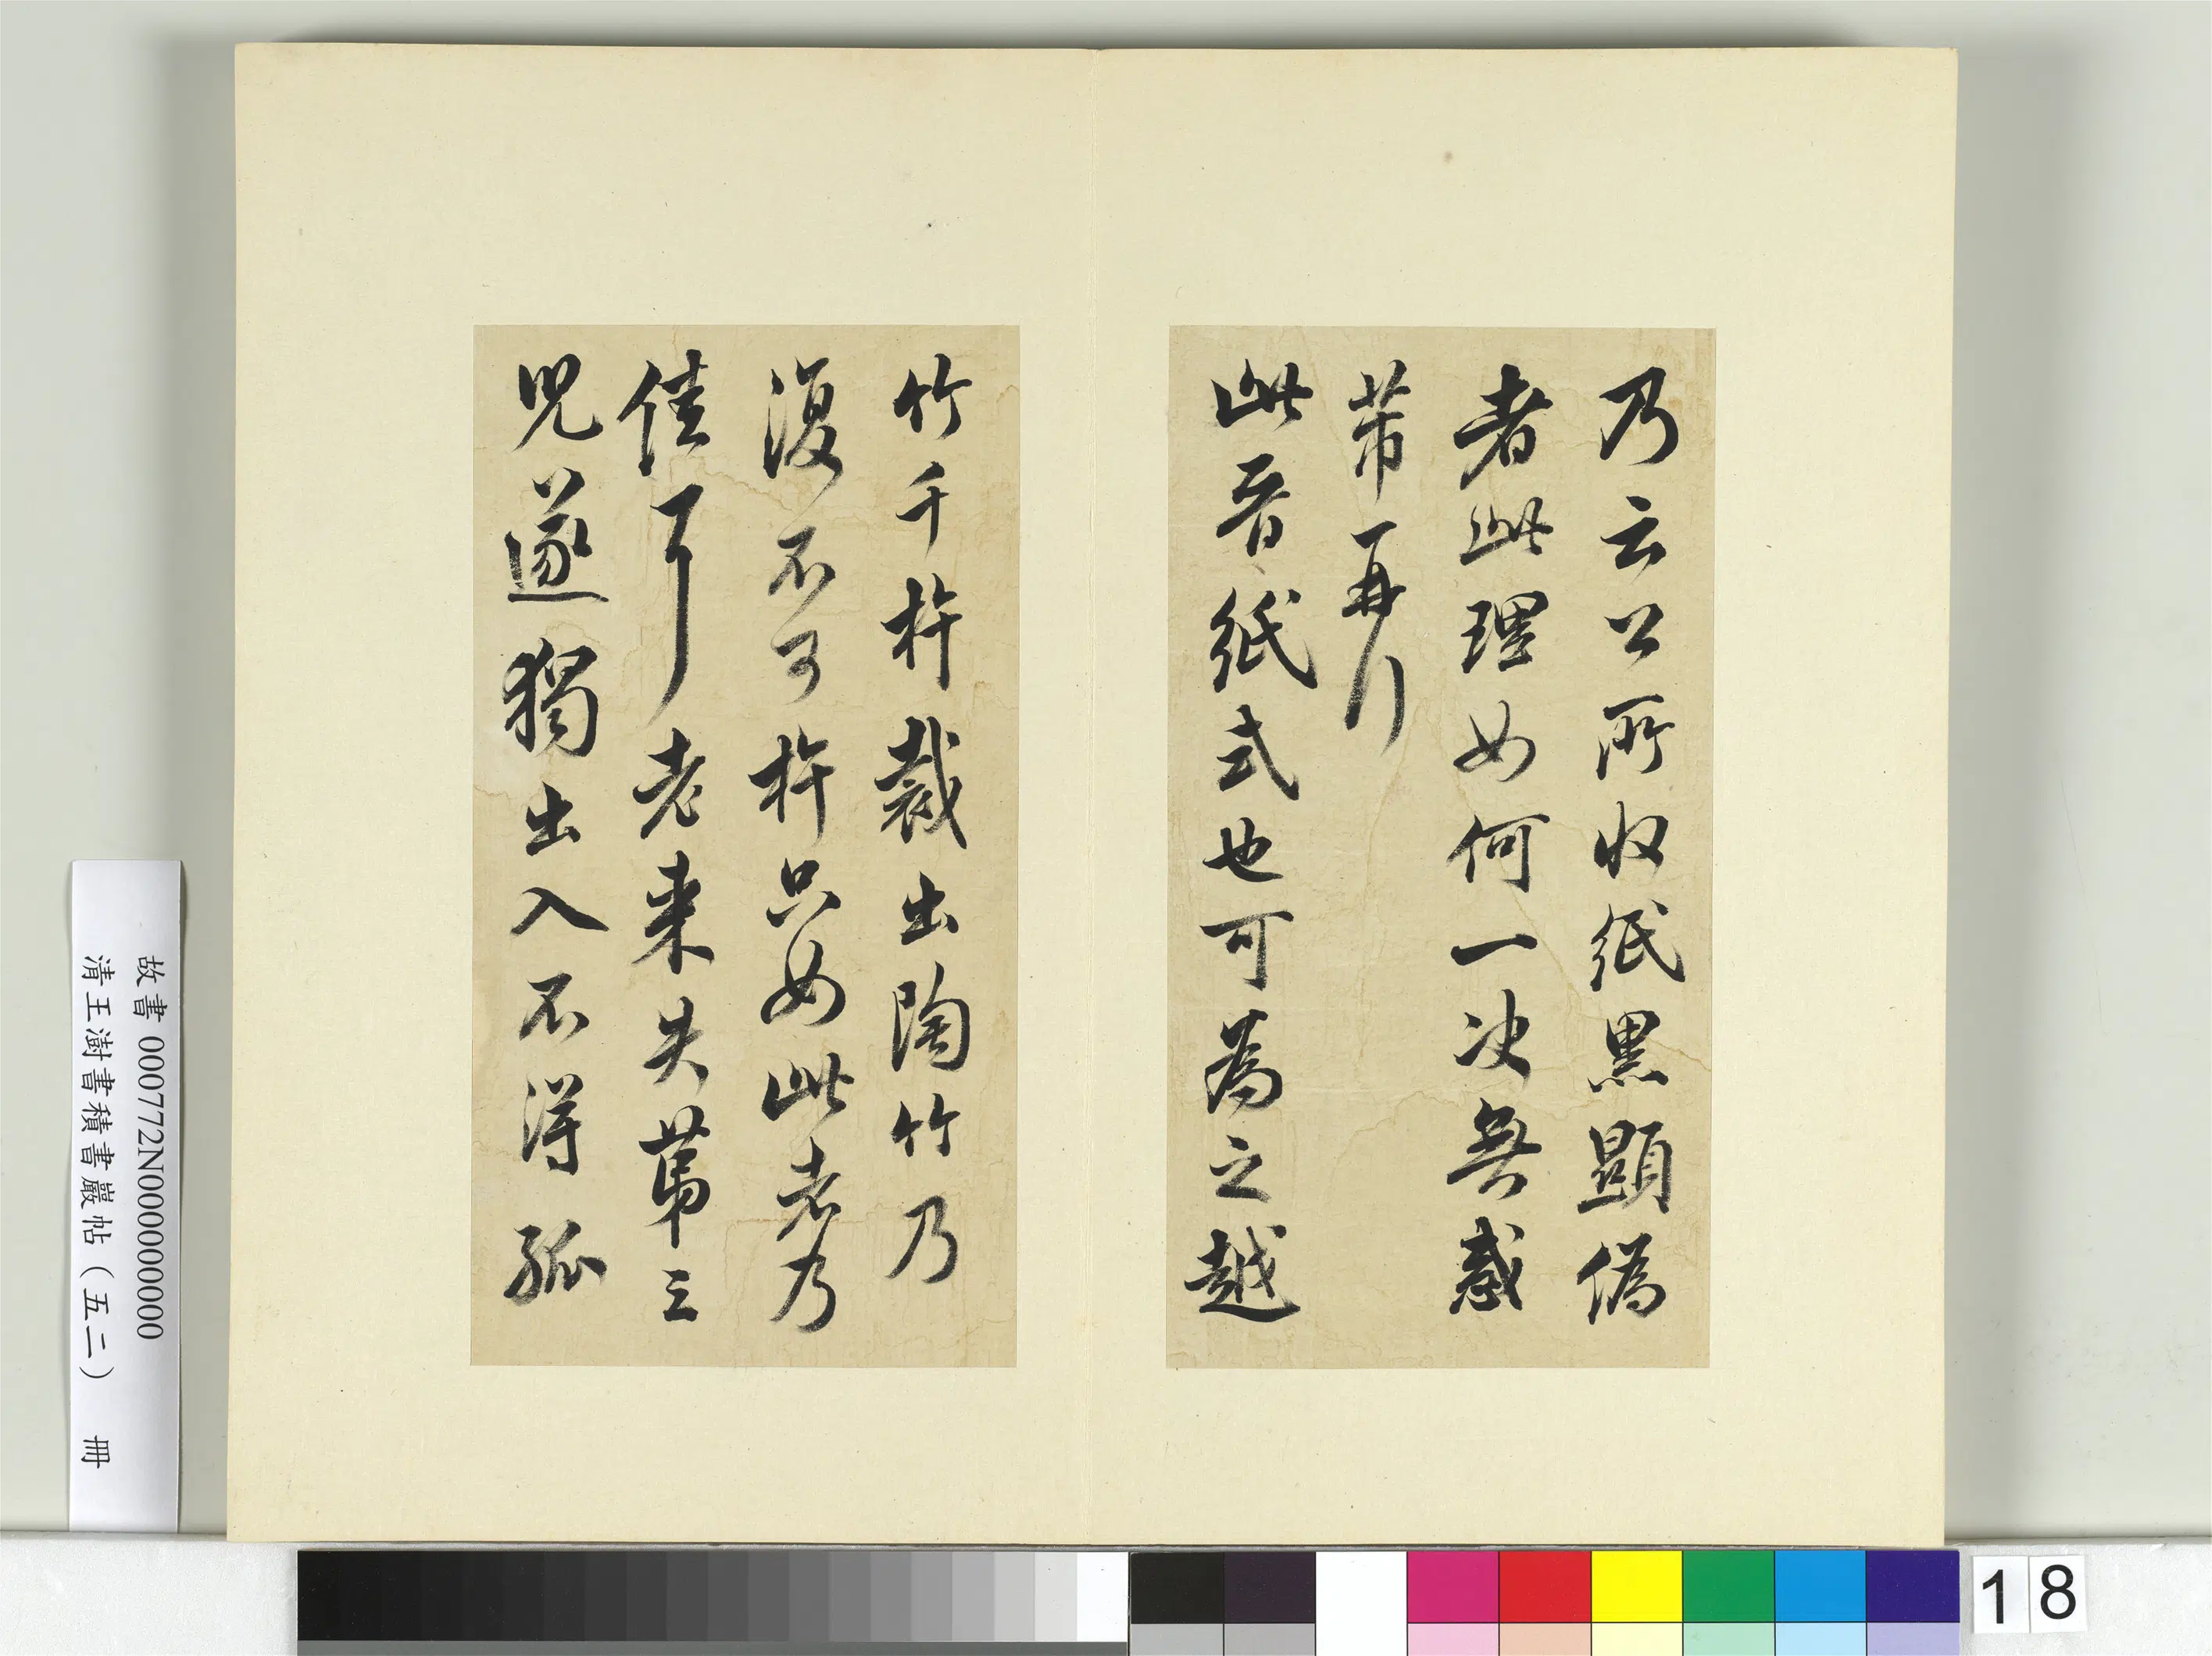 乃云公所收紙黑顯偽
者此理如何一决無惑
芾再行
此晉紙式也可為之越
竹千杵裁出陶竹乃
復不可杵只如此老乃
佳耳老来失第三
兒遂獨出入不得孤
故書 000772N000000000
清王澍書積書巖帖（五二） 冊
18